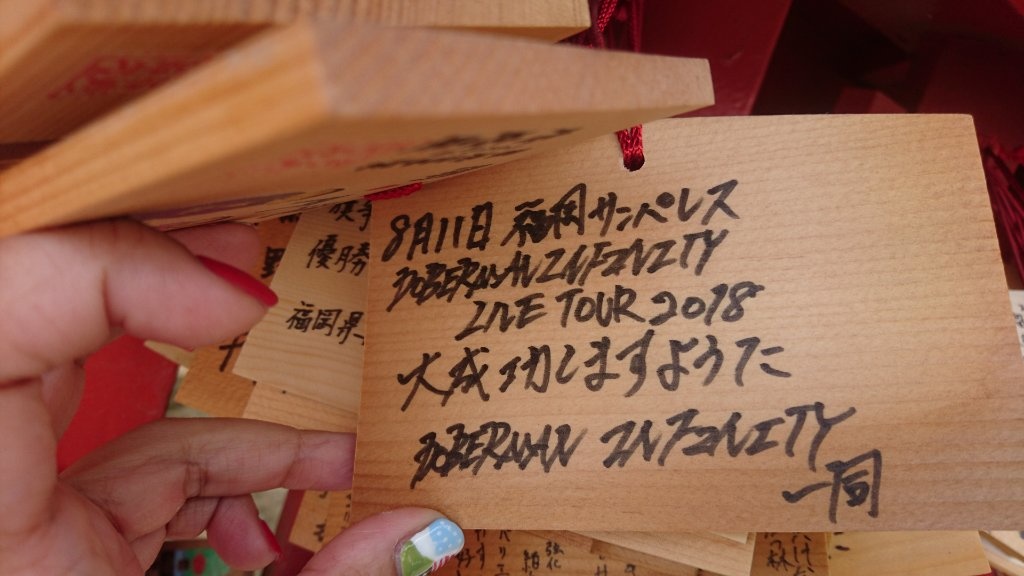 8月11日 福岡サンパレス
DOBERMAN INFINITY
LIVE TOUR 2018
大成功しますように
DOBERMAN INFINITY
一同
優勝
福岡県